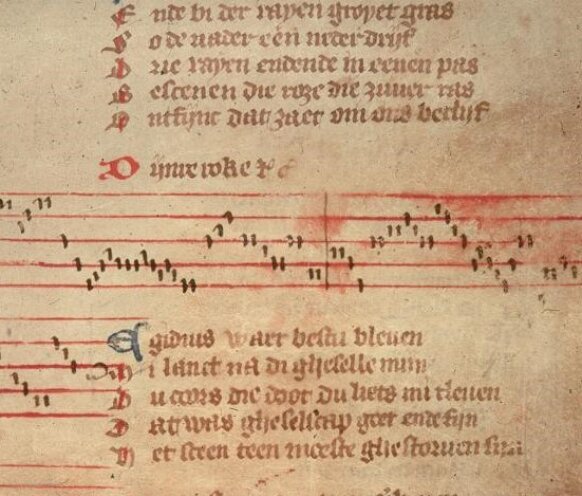 E nde bi der rayen groyet gras
een neder
D rie rayen endende in eenen pas
B escenen die roze die zuuer was
O ntfijnc dat zaet om ons bedrijf
D
E gidius waer bestu bleuen
M i lanct na di gheselle mijn
D u coors die doot du liets mi tleuen
D at was gheselscap goet ende fijn
H et sceen teen moeste ghestoruen sijn